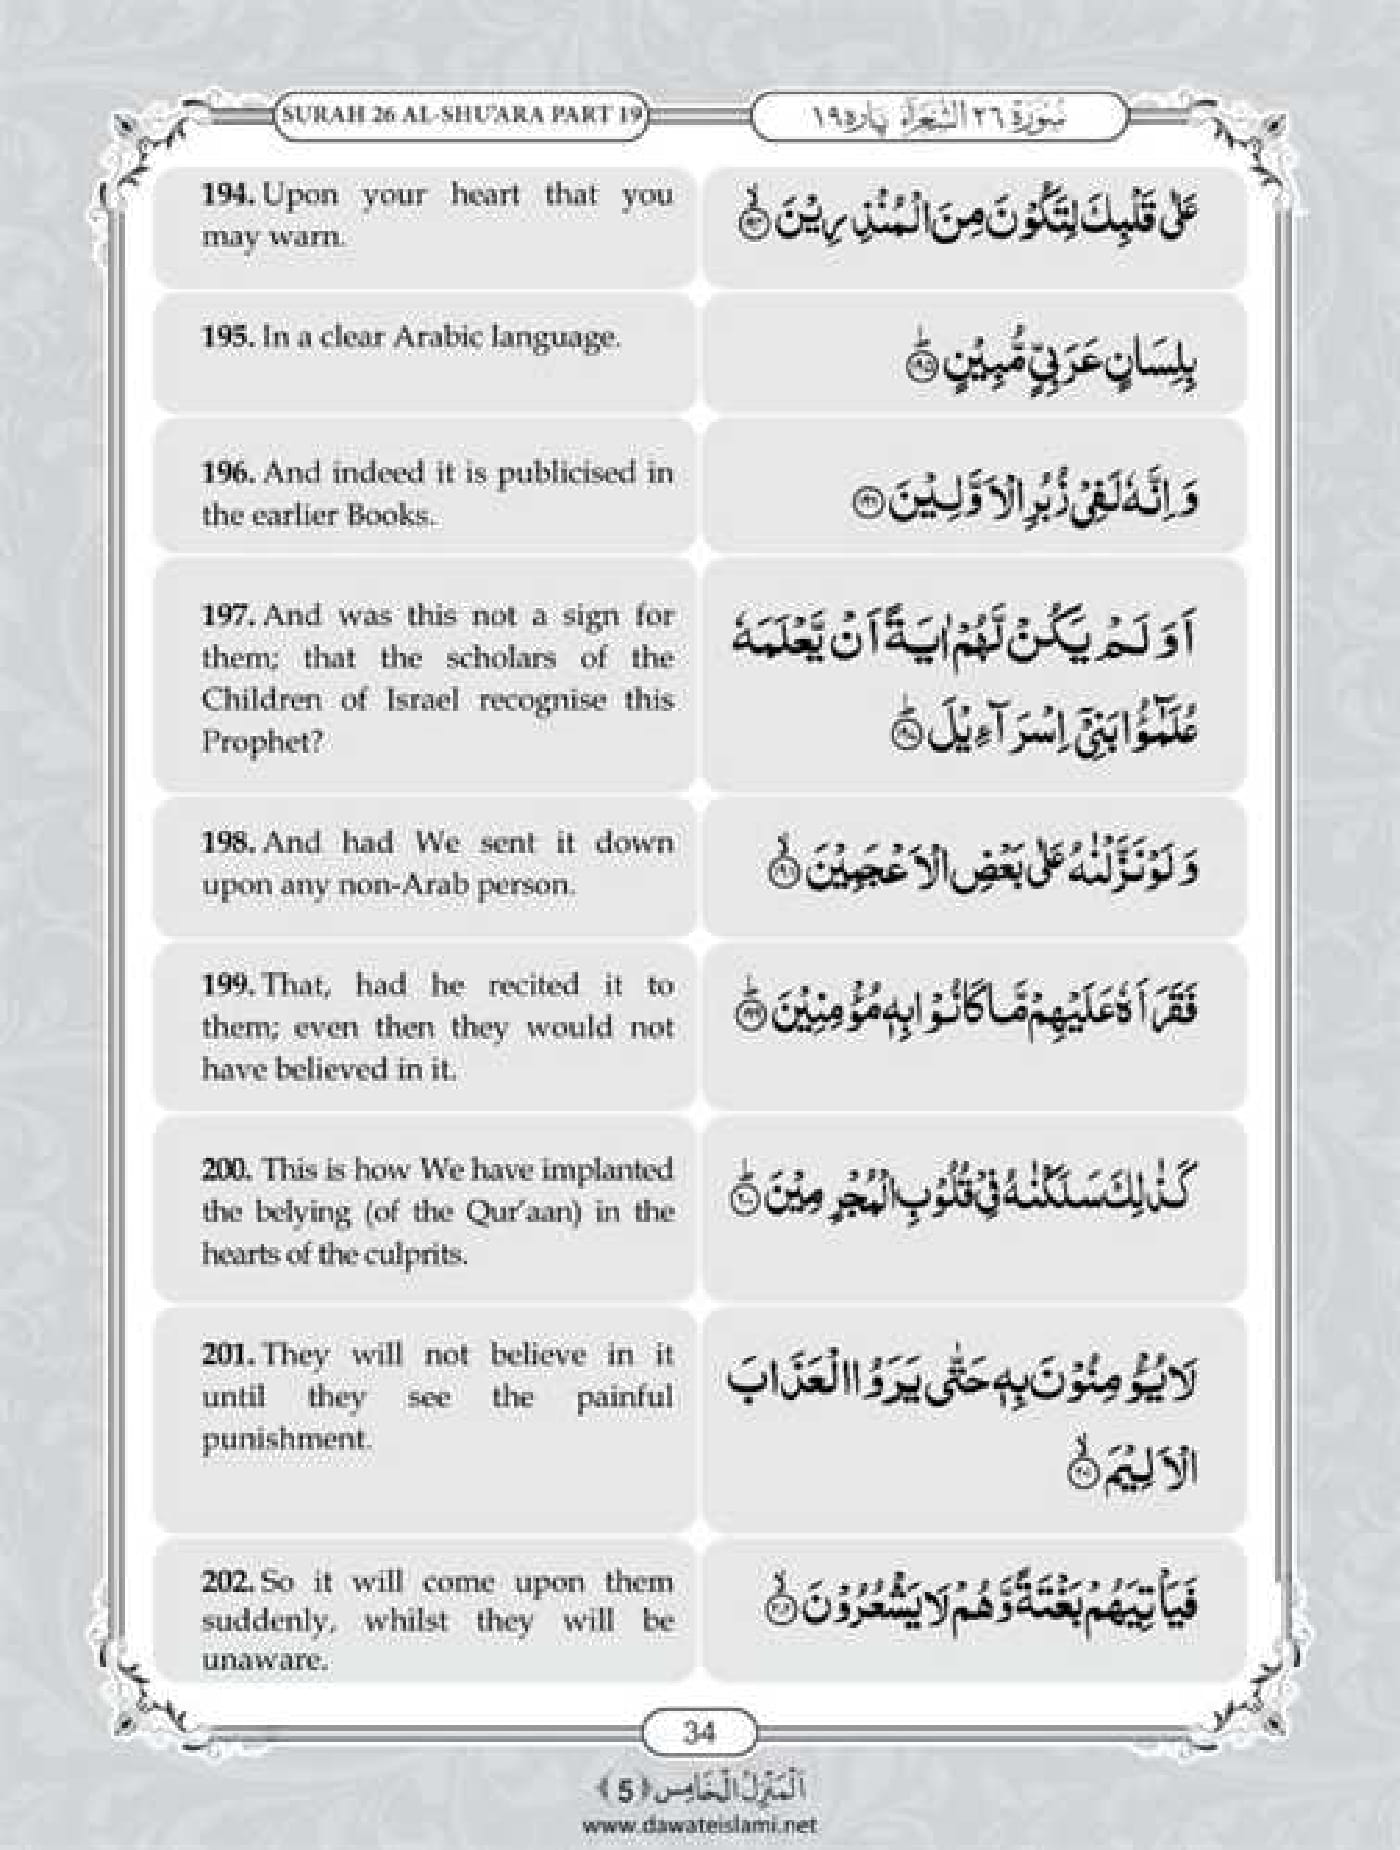 SURAH 26 AL-SHU'ARA PART 19
سُوْرَةُ ٢٦ الشُّعَرَآءِ پارہ ١٩
194. Upon your heart that you
may warn.
عَلٰى قَلْبِكَ لِتَكُوْنَ مِنَ الْمُنْذِرِيْنَ ۙ﴿۱۹۴﴾
195. In a clear Arabic language.
بِلِسَانٍ عَرَبِيٍّ مُّبِيْنٍ ؕ﴿۱۹۵﴾
196. And indeed it is publicised in
the earlier Books.
وَ اِنَّهٗ لَفِيْ زُبُرِ الْاَوَّلِيْنَ ﴿۱۹۶﴾
197. And was this not a sign for
them; that the scholars of the
Children of Israel recognise this
Prophet?
اَوَ لَمْ يَكُنْ لَّهُمْ اٰيَةً اَنْ يَّعْلَمَهٗ
عُلَمٰٓؤُا بَنِيْۤ اِسْرَآءِيْلَ ؕ﴿۱۹۷﴾
198. And had We sent it down
upon any non-Arab person.
وَ لَوْ نَزَّلْنٰهُ عَلٰى بَعْضِ الْاَعْجَمِيْنَ ۙ﴿۱۹۸﴾
199. That, had he recited it to
them; even then they would not
have believed in it.
فَقَرَاَهٗ عَلَيْهِمْ مَّا كَانُوْا بِهٖ مُؤْمِنِيْنَ ؕ﴿۱۹۹﴾
200. This is how We have implanted
the belying (of the Qur'aan) in the
hearts of the culprits.
كَذٰلِكَ سَلَكْنٰهُ فِيْ قُلُوْبِ الْمُجْرِمِيْنَ ؕ﴿۲۰۰﴾
201. They will not believe in it
until they see the painful
punishment.
لَا يُؤْمِنُوْنَ بِهٖ حَتّٰى يَرَوُا الْعَذَابَ
الْاَلِيْمَ ۙ﴿۲۰۱﴾
202. So it will come upon them
suddenly, whilst they will be
unaware.
فَيَاْتِيَهُمْ بَغْتَةً وَّ هُمْ لَا يَشْعُرُوْنَ ۙ﴿۲۰۲﴾
34
اَلْمَنْزِلُ الْخَامِس ﴿5﴾
www.dawateislami.net